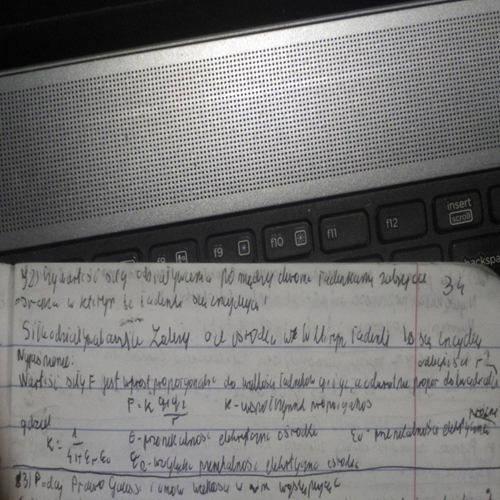 insert
scroll
f8
f9
f10
f11
f12
backspa
42) Czy wartość siły oddziaływania pomiędzy dwoma ładunkami zależy od
34
ośrodka w którym te ładunki się znajdują
Siła oddziaływania zależy od ośrodka w którym ładunki te się znajdują
Wyjaśnienie:
odległości r
Wartość siły F jest wprost proporcjonalna do wielkości ładunków q1 i q2 a odwrotnie propor do kwadratu
F = k q1 q2 / r
k - współczynnik proporcjonal
gdzie
k = 1 / 4π εr ε0
ε - przenikalność elektryczna ośrodka
ε0 - przenikalność elektryczna
próżni
εr - względna przenikalność elektryczna ośrodka
43) Podaj Prawo Gaussa i omów wielkości w nim występujące